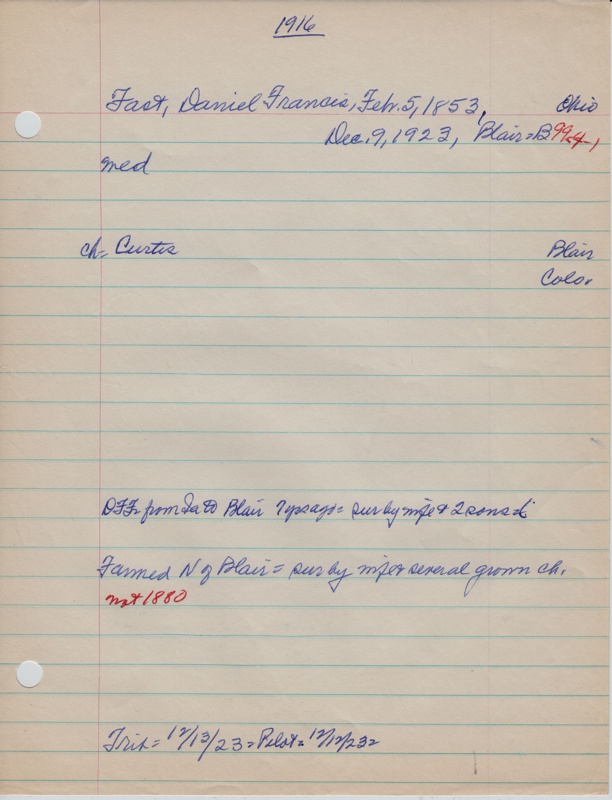 1916
Fast, Daniel Francis, Feb. 5, 1853, Ohio
Dec. 9, 1923, Blair = B 99-4,
med
ch = Curtis Blair
Colo.
DFF from Ia to Blair 7 yrs ago = sur by wife & 2 sons =
Farmed N of Blair = sur by wife & several grown ch.
not 1880
Trib = 12/13/23 = Pilot = 12/12/23 =